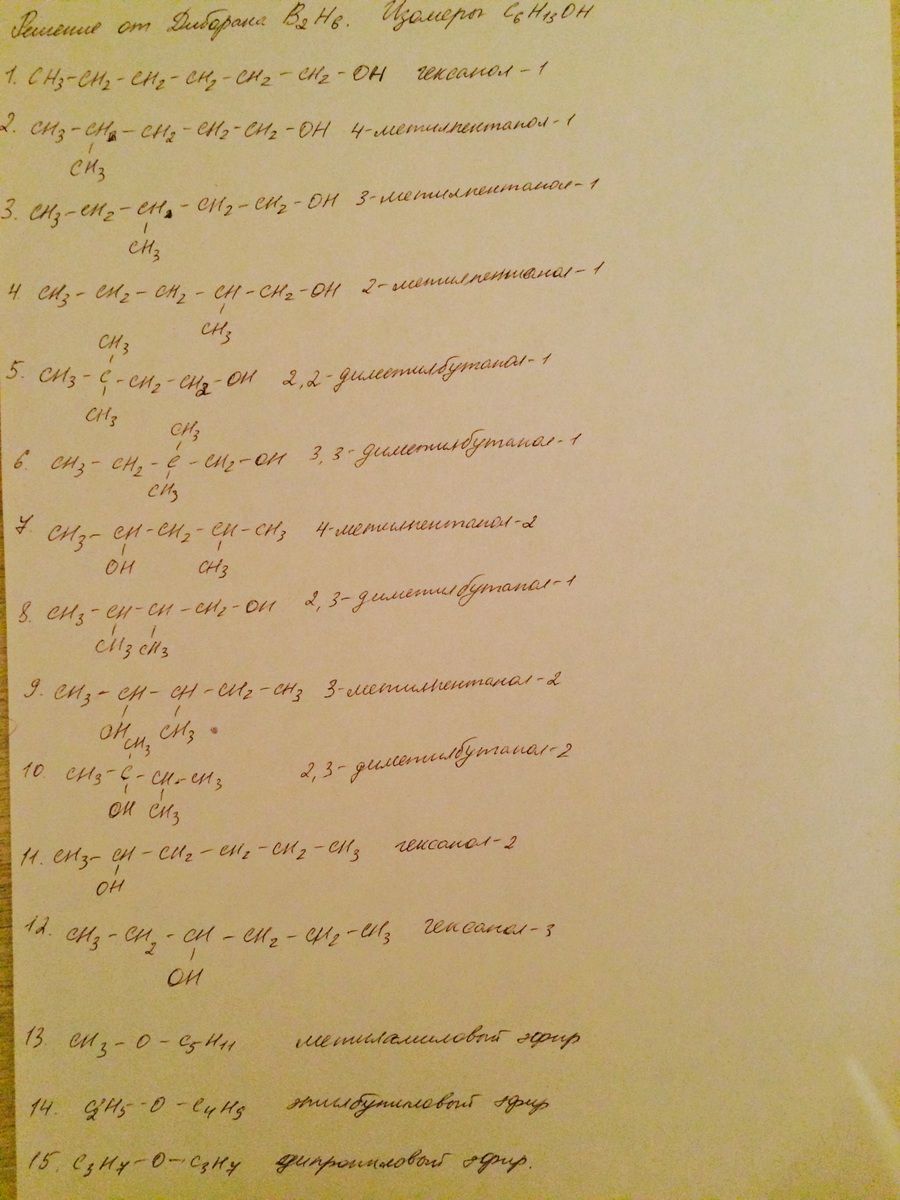 Решение от Диборана B₂H₆. Изомеры C₆H₁₃OH
1. CH₃-CH₂-CH₂-CH₂-CH₂-CH₂-OH гексанол-1
2. CH₃-CH-CH₂-CH₂-CH₂-OH 4-метилпентанол-1
CH₃
3. CH₃-CH₂-CH-CH₂-CH₂-OH 3-метилпентанол-1
CH₃
4 CH₃-CH₂-CH₂-CH-CH₂-OH 2-метилпентанол-1
CH₃
CH₃
5. CH₃-C-CH₂-CH₂-OH 2,2-диметилбутанол-1
CH₃
CH₃
6. CH₃-CH₂-C-CH₂-OH 3,3-диметилбутанол-1
CH₃
7. CH₃-CH-CH₂-CH-CH₃ 4-метилпентанол-2
OH CH₃
8. CH₃-CH-CH-CH₂-OH 2,3-диметилбутанол-1
CH₃ CH₃
9. CH₃-CH-CH-CH₂-CH₃ 3-метилпентанол-2
OH CH₃
CH₃
10. CH₃-C-CH-CH₃ 2,3-диметилбутанол-2
OH CH₃
11. CH₃-CH-CH₂-CH₂-CH₂-CH₃ гексанол-2
OH
12. CH₃-CH₂-CH-CH₂-CH₂-CH₃ гексанол-3
OH
13. CH₃-O-C₅H₁₁ метиламиловый эфир
14. C₂H₅-O-C₄H₉ этилбутиловый эфир
15. C₃H₇-O-C₃H₇ дипропиловый эфир.